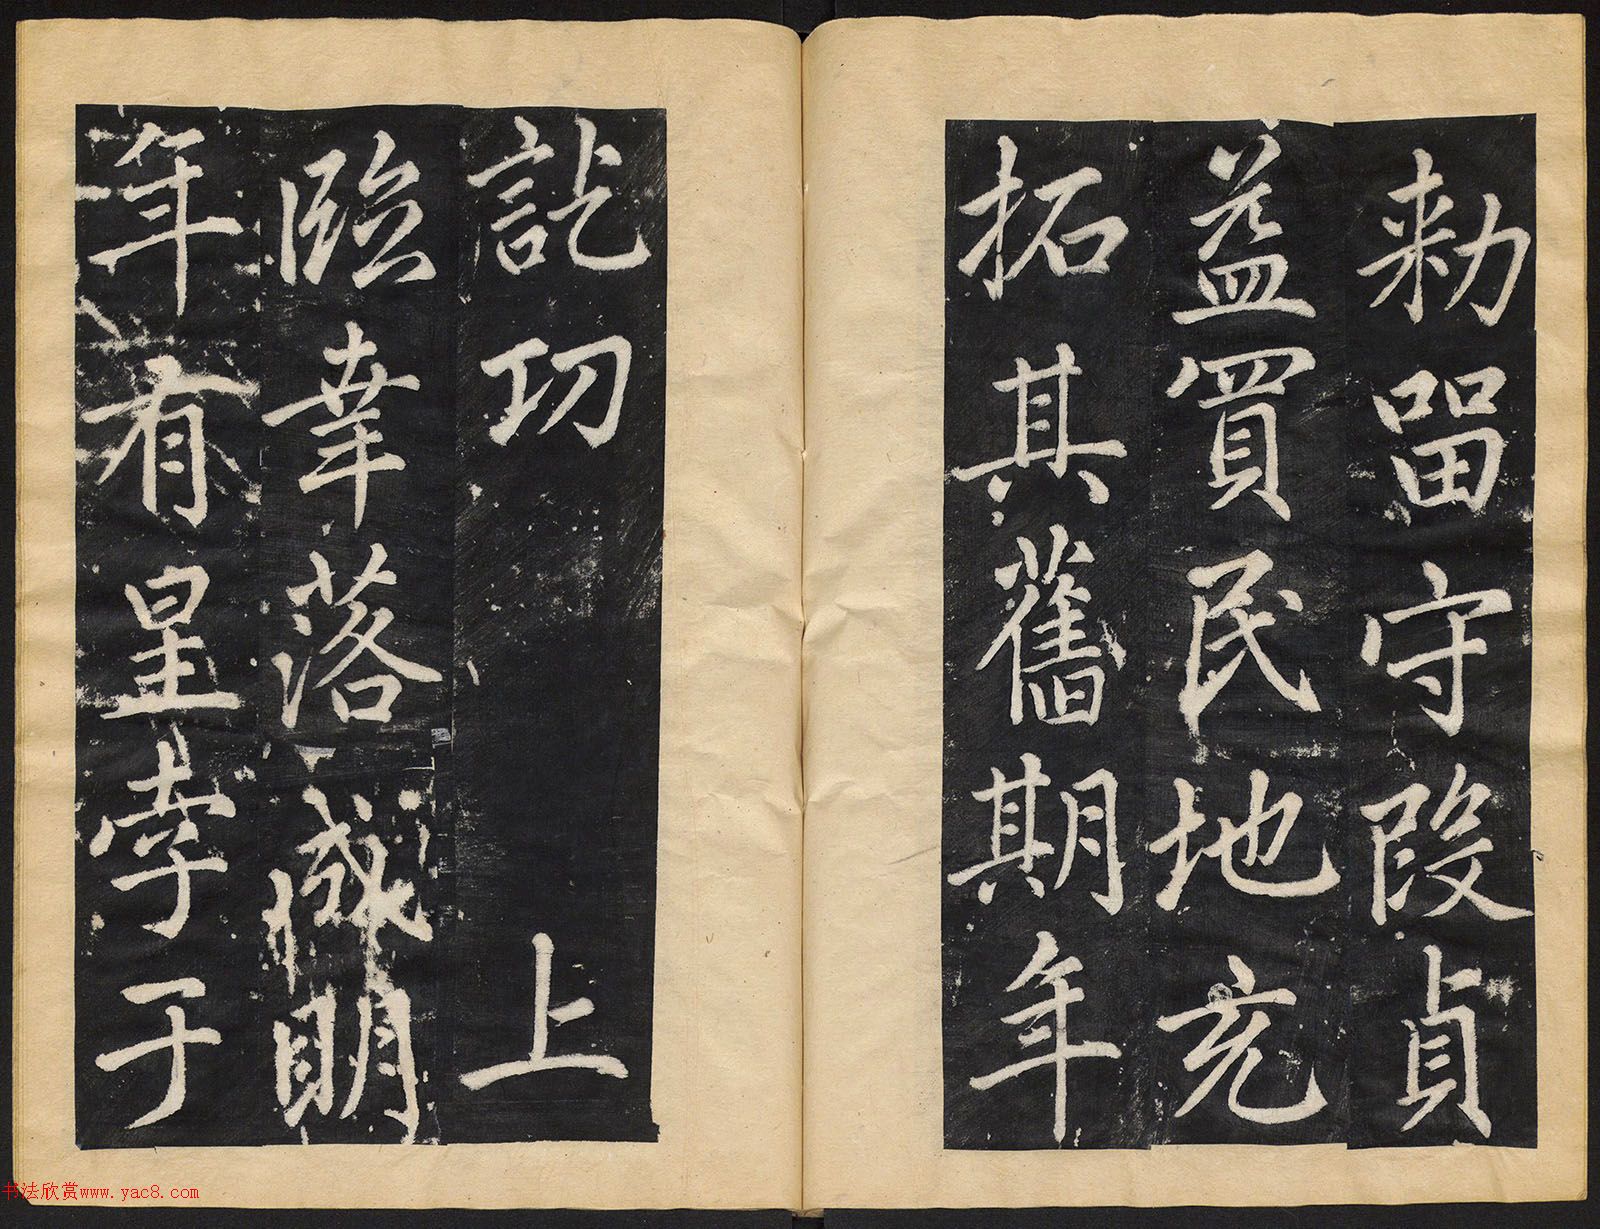 勑留守段貞
益買民地充
拓其舊期年
訖功　　上
臨幸落成明
年有星孛于
书法欣赏www.yac8.com